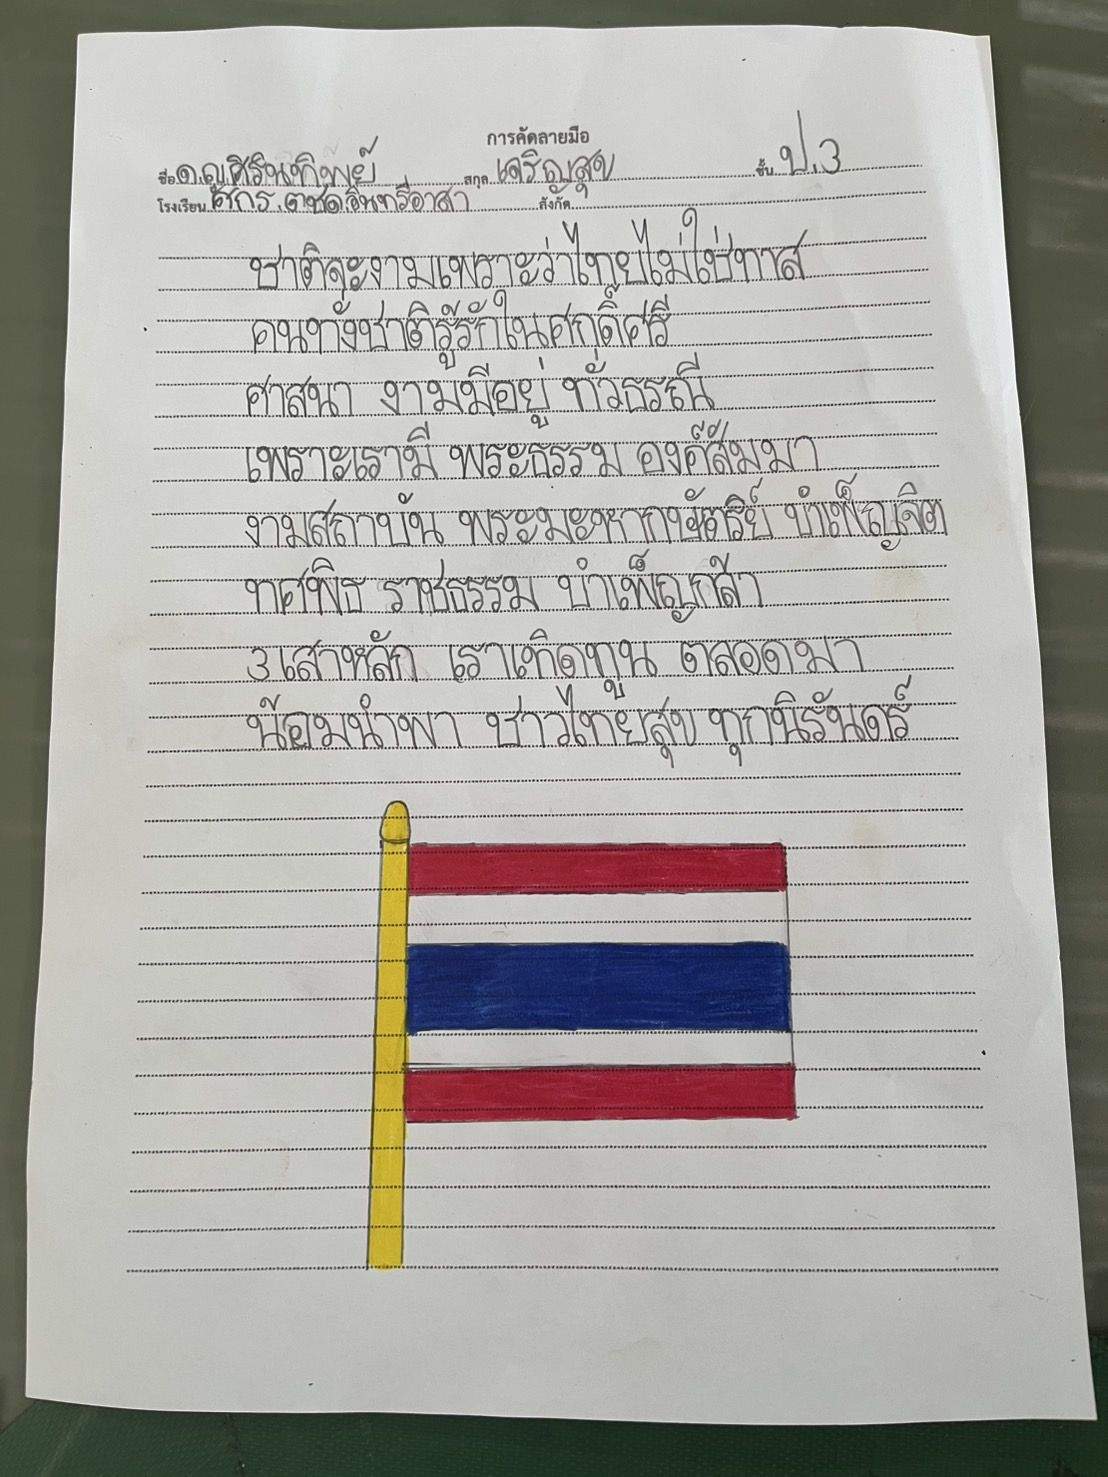 การคัดลายมือ
ชื่อ ด.ญ.ศิรินทิพย์ สกุล เจริญสุข ชั้น ป.3
โรงเรียน ศกร.ตชด.อินทรีอาสา สังกัด
ชาติจะงามเพราะว่าไทยไม่ใช่ทาส
คนทั้งชาติรู้รักในศกดิ์ศรี
ศาสนา งามมีอยู่ ทั่วธรณี
เพราะเรามี พระธรรม องค์สัมมา
งามสถาบัน พระมะหากษัตริย์ บำเพ็ญจิต
ทศพิธ ราชธรรม บำเพ็ญกล้า
3 เสาหลัก เราเทิดทูน ตลอดมา
น้อมนำพา ชาวไทยสุข ทุกนิรันดร์